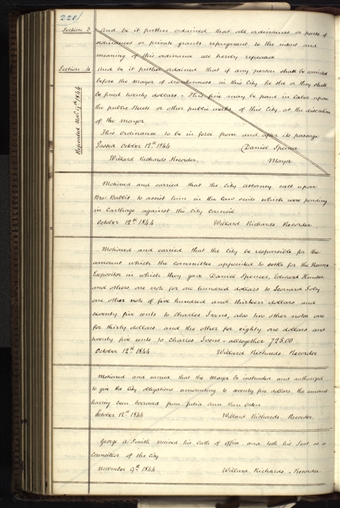 220/
Section 3
And be it further ordained that all ordinances or parts of
ordinances or private grants repugnant to the intent and
meaning of this ordinance are hereby repealed
Section 4
And be it further ordained that if any person shall be convicted
before the Mayor of drunkenness in this City he she or they shall
be fined twenty dollars - This fine may be paid in labor upon
the public Streets or other public works of this City, at the discretion
of the mayor
Repealed Nov. 1844
This Ordinance to be in force from and after its passage
Passed October 12th 1844
Daniel Spencer
Willard Richards Recorder
Mayor
Motioned and carried that the City attorney call upon
Mr. Babbit to assist him in the law suits which were pending
in Carthage against the City Council
October 12th 1844
Willard Richards Recorder
Motioned and carried that the City be responsible for the
amount which the Committee appointed to settle for the Nauvoo
Expositor in which they gave Daniel Spencer, Edward Hunter
and others one note for one hundred dollars to Leonard Soby
one other note of five hundred and thirteen dollars and
twenty five cents to Charles Ivins, also two other notes one
for thirty dollars and the other for eighty one dollars and
twenty five cents to Charles Ivins - altogether 725.00
October 12th 1844
Willard Richards, Recorder
Motioned and carried that the Mayor be instructed and authorized
to give the City obligations amounting to twenty five dollars the amount
having been borrowed from
October 12th 1844
Willard Richards, Recorder
George A. Smith received his Oath of office and took his Seat as a
Councillor of the City
November 9th 1844
Willard Richards - Recorder